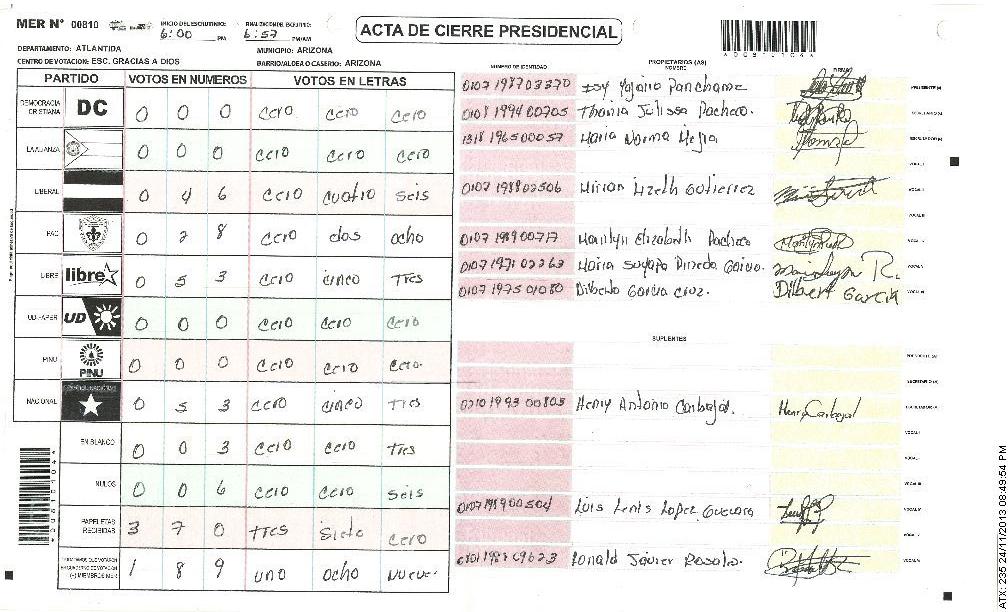 MER N° 00810 INICIO DEL ESCRUTINIO: 6:00 PM FINALIZACION DEL ESCRUTINIO: 6:57 PM/AM
ACTA DE CIERRE PRESIDENCIAL
DEPARTAMENTO: ATLANTIDA MUNICIPIO: ARIZONA
CENTRO DE VOTACION: ESC. GRACIAS A DIOS BARRIO/ALDEA O CASERIO: ARIZONA
PARTIDO VOTOS EN NUMEROS VOTOS EN LETRAS
DEMOCRACIA CRISTIANA DC 0 0 0 cero cero cero
LA ALIANZA 0 0 0 cero cero cero
LIBERAL 0 4 6 cero cuatro seis
PAC 0 2 8 cero dos ocho
LIBRE libre 0 5 3 cero cinco Tres
UD-FAPER UD 0 0 0 cero cero cero
PINU PINU 0 0 0 cero cero cero.
NACIONAL 0 5 3 cero cinco Tres
EN BLANCO 0 0 3 cero cero Tres
NULOS 0 0 6 cero cero seis
PAPELETAS RECIBIDAS 3 7 0 Tres siete cero
(+) MIEMBROS MER 1 8 9 uno ocho nueve
NUMERO DE IDENTIDAD PROPIETARIOS (AS) NOMBRE FIRMA
0107 1987 03370 PRESIDENTE (A)
0108 1994 00705 Thania Julissa Pacheco. SECRETARIO (A)
1318 1965 00057 Maria Norma Mejia ESCRUTADOR (A)
VOCAL I
0107 1988 02506 Mirian Lizeth Gutierrez VOCAL II
VOCAL III
0107 1989 00717 Marilyn Elizabeth Pacheco
0107 1971 02263 Maria Suyapa Pineda
0107 1975 01080 Dilberto Garcia Cruz. Dilbert Garcia
SUPLENTES
PRESIDENTE (A)
SECRETARIO (A)
0210 1993 00805 Henry Antonio Carbajal. Henry Carbajal ESCRUTADOR (A)
VOCAL I
VOCAL II
VOCAL III
0107 1989 00504 Luis Lenis Lopez Guevara VOCAL IV
VOCAL V
Ronald Javier Rosales.
ATX: 235 24/11/2013 08:49:54 PM